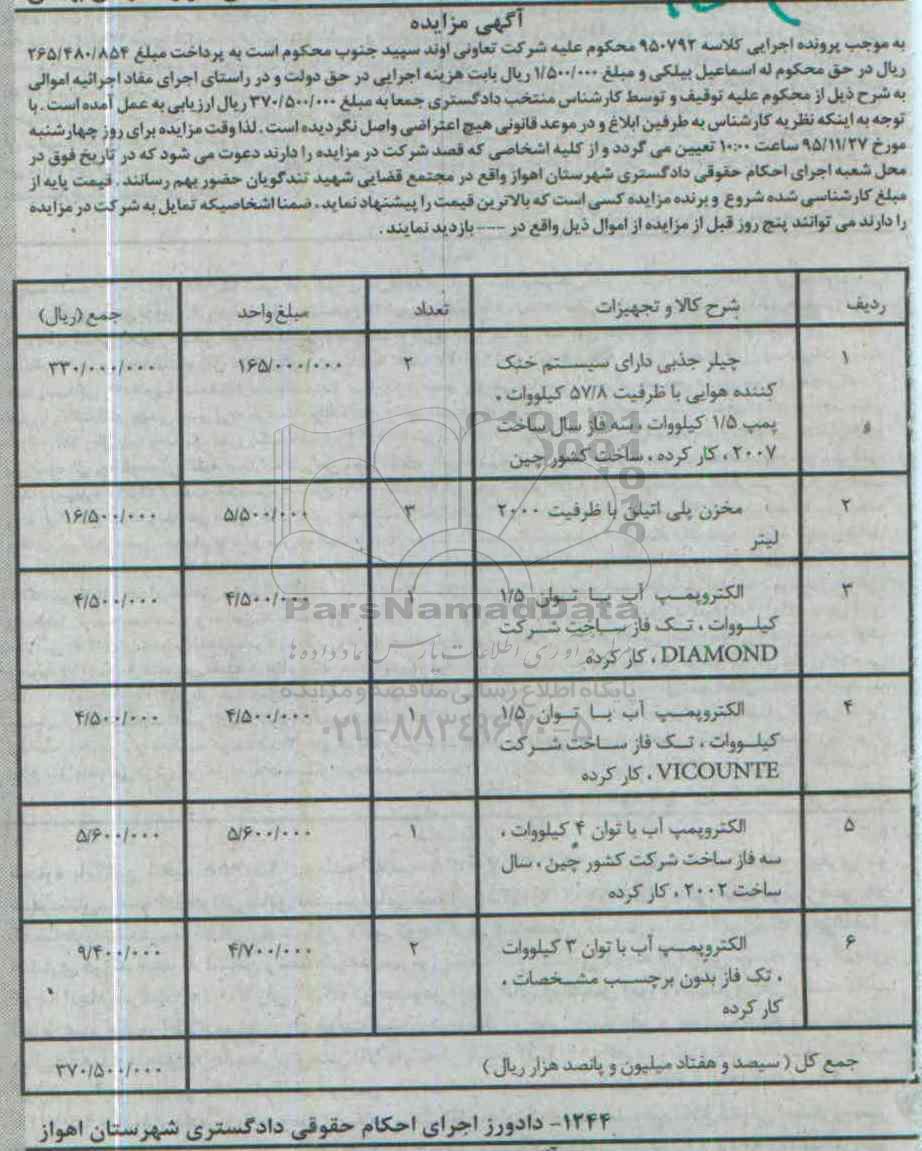 آگهی مزایده
به موجب پرونده اجرایی کلاسه ۹۵۰۷۹۲ محکوم علیه شرکت تعاونی اوند سپید جنوب محکوم است به پرداخت مبلغ ۲۶۵/۴۸۰/۸۵۴
ریال در حق محکوم له اسماعیل بیلکی و مبلغ ۱/۵۰۰/۰۰۰ ریال بابت هزینه اجرایی در حق دولت و در راستای اجرای مفاد اجرائیه اموالی
به شرح ذیل از محکوم علیه توقیف و توسط کارشناس منتخب دادگستری جمعا به مبلغ ۳۷۰/۵۰۰/۰۰۰ ریال ارزیابی به عمل آمده است . با
توجه به اینکه نظریه کارشناس به طرفین ابلاغ و در موعد قانونی هیچ اعتراضی واصل نگردیده است . لذا وقت مزایده برای روز چهارشنبه
مورخ ۹۵/۱۱/۲۷ ساعت ۱۰:۰۰ تعیین می گردد و از کلیه اشخاصی که قصد شرکت در مزایده را دارند دعوت می شود که در تاریخ فوق در
محل شعبه اجرای احکام حقوقی دادگستری شهرستان اهواز واقع در مجتمع قضایی شهید تندگویان حضور بهم رسانند . قیمت پایه از
مبلغ کارشناسی شده شروع و برنده مزایده کسی است که بالاترین قیمت را پیشنهاد نماید . ضمنا اشخاصیکه تمایل به شرکت در مزایده
را دارند می توانند پنج روز قبل از مزایده از اموال ذیل واقع در ---- بازدید نمایند .
ردیف شرح کالا و تجهیزات تعداد مبلغ واحد جمع (ریال)
۱ چیلر جذبی دارای سیستم خنک ۲ ۱۶۵/۰۰۰/۰۰۰ ۳۳۰/۰۰۰/۰۰۰
کننده هوایی با ظرفیت ۵۷/۸ کیلووات ،
پمپ ۱/۵ کیلووات ، سه فاز سال ساخت
۲۰۰۷ ، کار کرده ، ساخت کشور چین
۲ مخزن پلی اتیلن با ظرفیت ۲۰۰۰ ۳ ۵/۵۰۰/۰۰۰ ۱۶/۵۰۰/۰۰۰
لیتر
۳ الکتروپمپ آب با توان ۱/۵ ۱ ۴/۵۰۰/۰۰۰ ۴/۵۰۰/۰۰۰
ParsNamadData
کیلووات ، تک فاز ساخت شرکت
DIAMOND ، کار کرده
پایگاه اطلاع رسانی مناقصه و مزایده
۴ الکتروپمپ آب با توان ۱/۵ ۱ ۴/۵۰۰/۰۰۰ ۴/۵۰۰/۰۰۰
۰۲۱-۸۸۳۴۹۶۷۰-۵
کیلووات ، تک فاز ساخت شرکت
VICOUNTE ، کار کرده
۵ الکتروپمپ آب با توان ۴ کیلووات ، ۱ ۵/۶۰۰/۰۰۰ ۵/۶۰۰/۰۰۰
سه فاز ساخت شرکت کشور چین ، سال
ساخت ۲۰۰۲ ، کار کرده
۶ الکتروپمپ آب با توان ۳ کیلووات ۲ ۴/۷۰۰/۰۰۰ ۹/۴۰۰/۰۰۰
، تک فاز بدون برچسب مشخصات ،
کار کرده
جمع کل ( سیصد و هفتاد میلیون و پانصد هزار ریال ) ۳۷۰/۵۰۰/۰۰۰
۱۲۴۴- دادورز اجرای احکام حقوقی دادگستری شهرستان اهواز